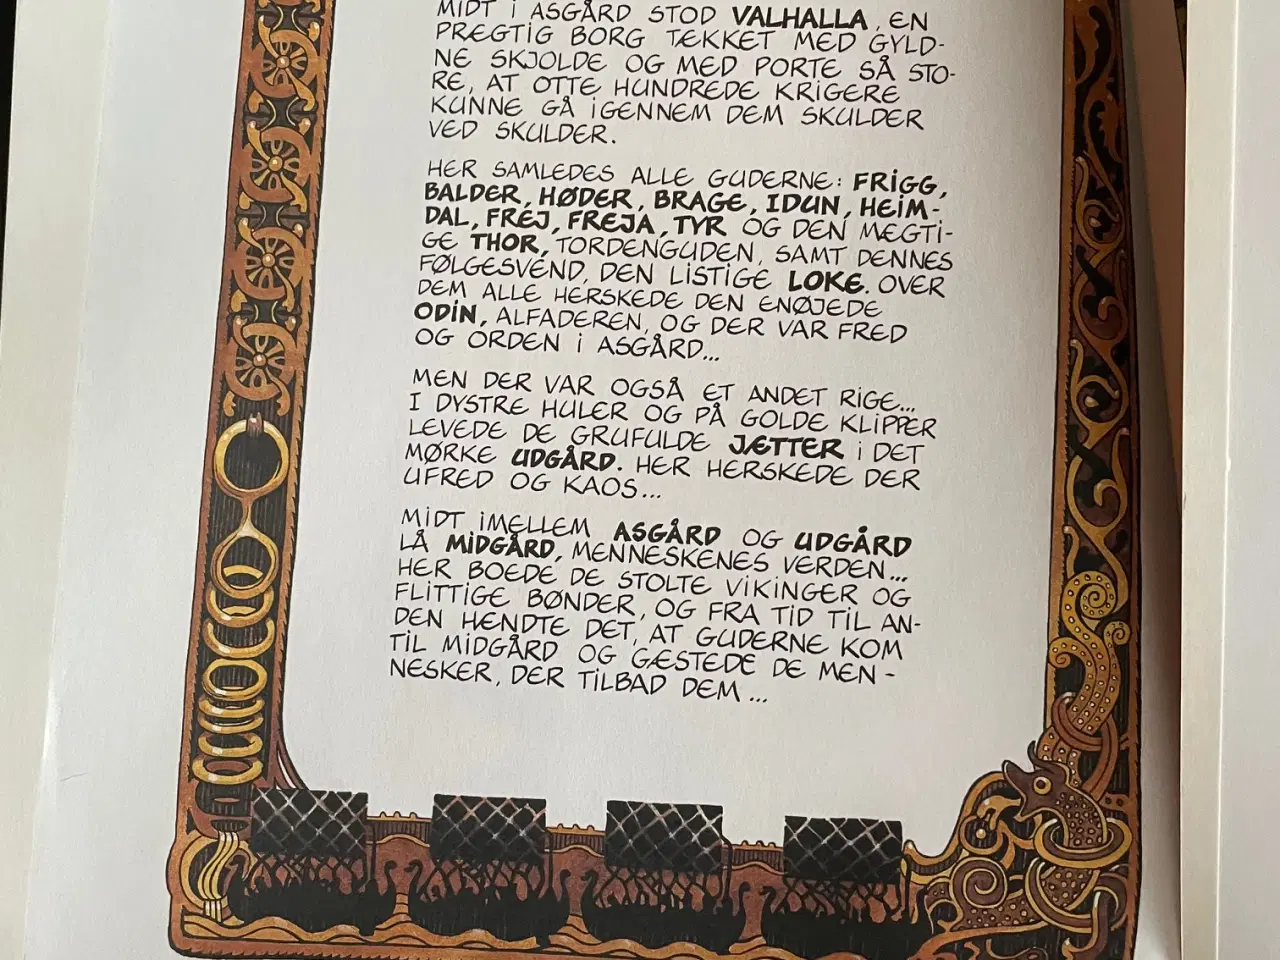 MIDT I ASGÅRD STOD VALHALLA, EN
PRÆGTIG BORG TÆKKET MED GYLD-
NE SKJOLDE OG MED PORTE SÅ STO-
RE, AT OTTE HUNDREDE KRIGERE
KUNNE GÅ IGENNEM DEM SKULDER
VED SKULDER.
HER SAMLEDES ALLE GUDERNE: FRIGG,
BALDER, HØDER, BRAGE, IDUN, HEIM-
DAL, FREJ, FREJA, TYR OG DEN MÆGTI-
GE THOR, TORDENGUDEN, SAMT DENNES
FØLGESVEND, DEN LISTIGE LOKE. OVER
DEM ALLE HERSKEDE DEN ENØJEDE
ODIN, ALFADEREN, OG DER VAR FRED
OG ORDEN I ASGÅRD...
MEN DER VAR OGSÅ ET ANDET RIGE...
I DYSTRE HULER OG PÅ GOLDE KLIPPER
LEVEDE DE GRUFULDE JÆTTER I DET
MØRKE UDGÅRD. HER HERSKEDE DER
UFRED OG KAOS...
MIDT IMELLEM ASGÅRD OG UDGÅRD
LÅ MIDGÅRD, MENNESKENES VERDEN...
HER BOEDE DE STOLTE VIKINGER OG
FLITTIGE BØNDER, OG FRA TID TIL AN-
DEN HÆNDTE DET, AT GUDERNE KOM
TIL MIDGÅRD OG GÆSTEDE DE MEN-
NESKER, DER TILBAD DEM...